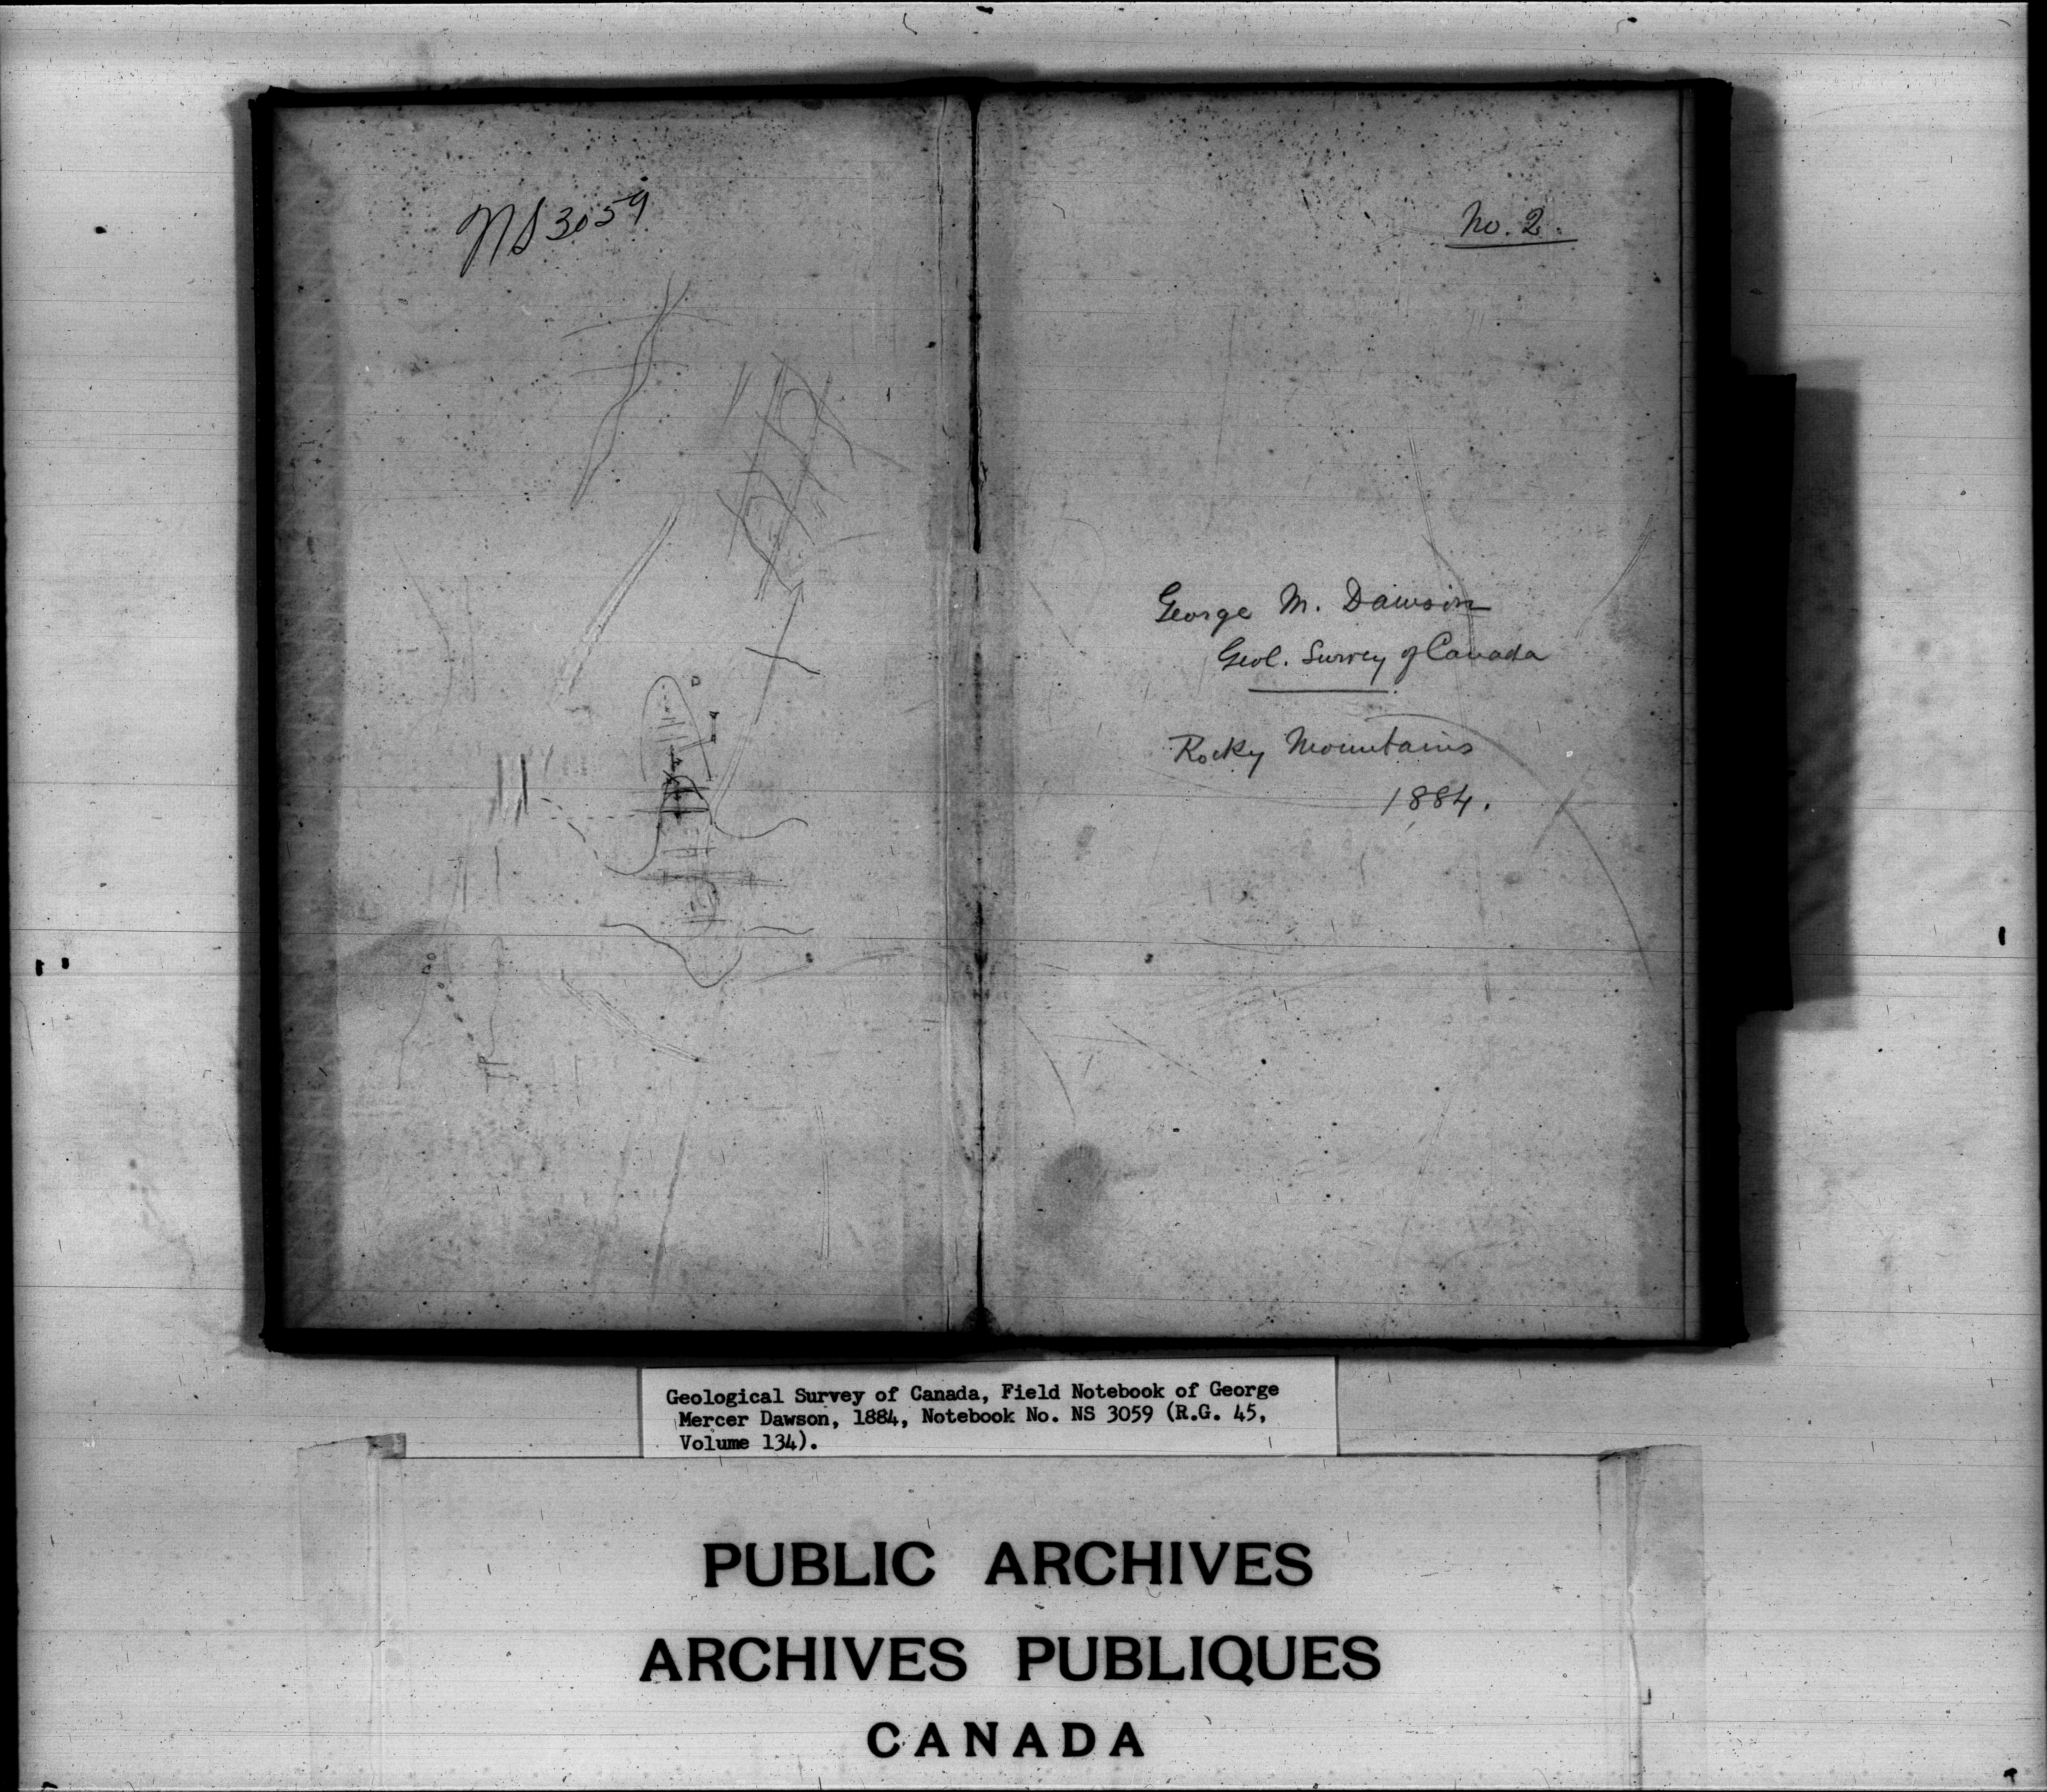 NS 3059
No. 2.
George M. Dawson
Geol. Survey of Canada
Rocky Mountains
1884.
Geological Survey of Canada, Field Notebook of George
Mercer Dawson, 1884, Notebook No. NS 3059 (R.G. 45,
Volume 134).
PUBLIC ARCHIVES
ARCHIVES PUBLIQUES
CANADA